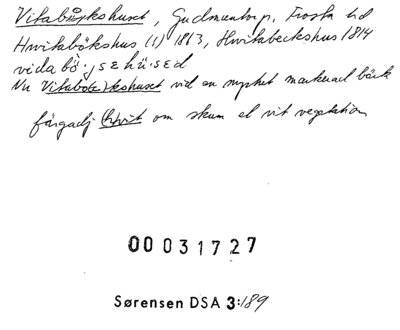 Vitabäckshuset, Gudmuntorp, Frosta hd
Hvitabökshus (1) 1863, Hvitabeckshus 1814
vida bö·jsɛhü·sɛd
Nu Vitabäckshuset vid en mycket markerad bäck
färgadj (h)vit om skum el vit vegetation
00031727
Sørensen DSA 3:189